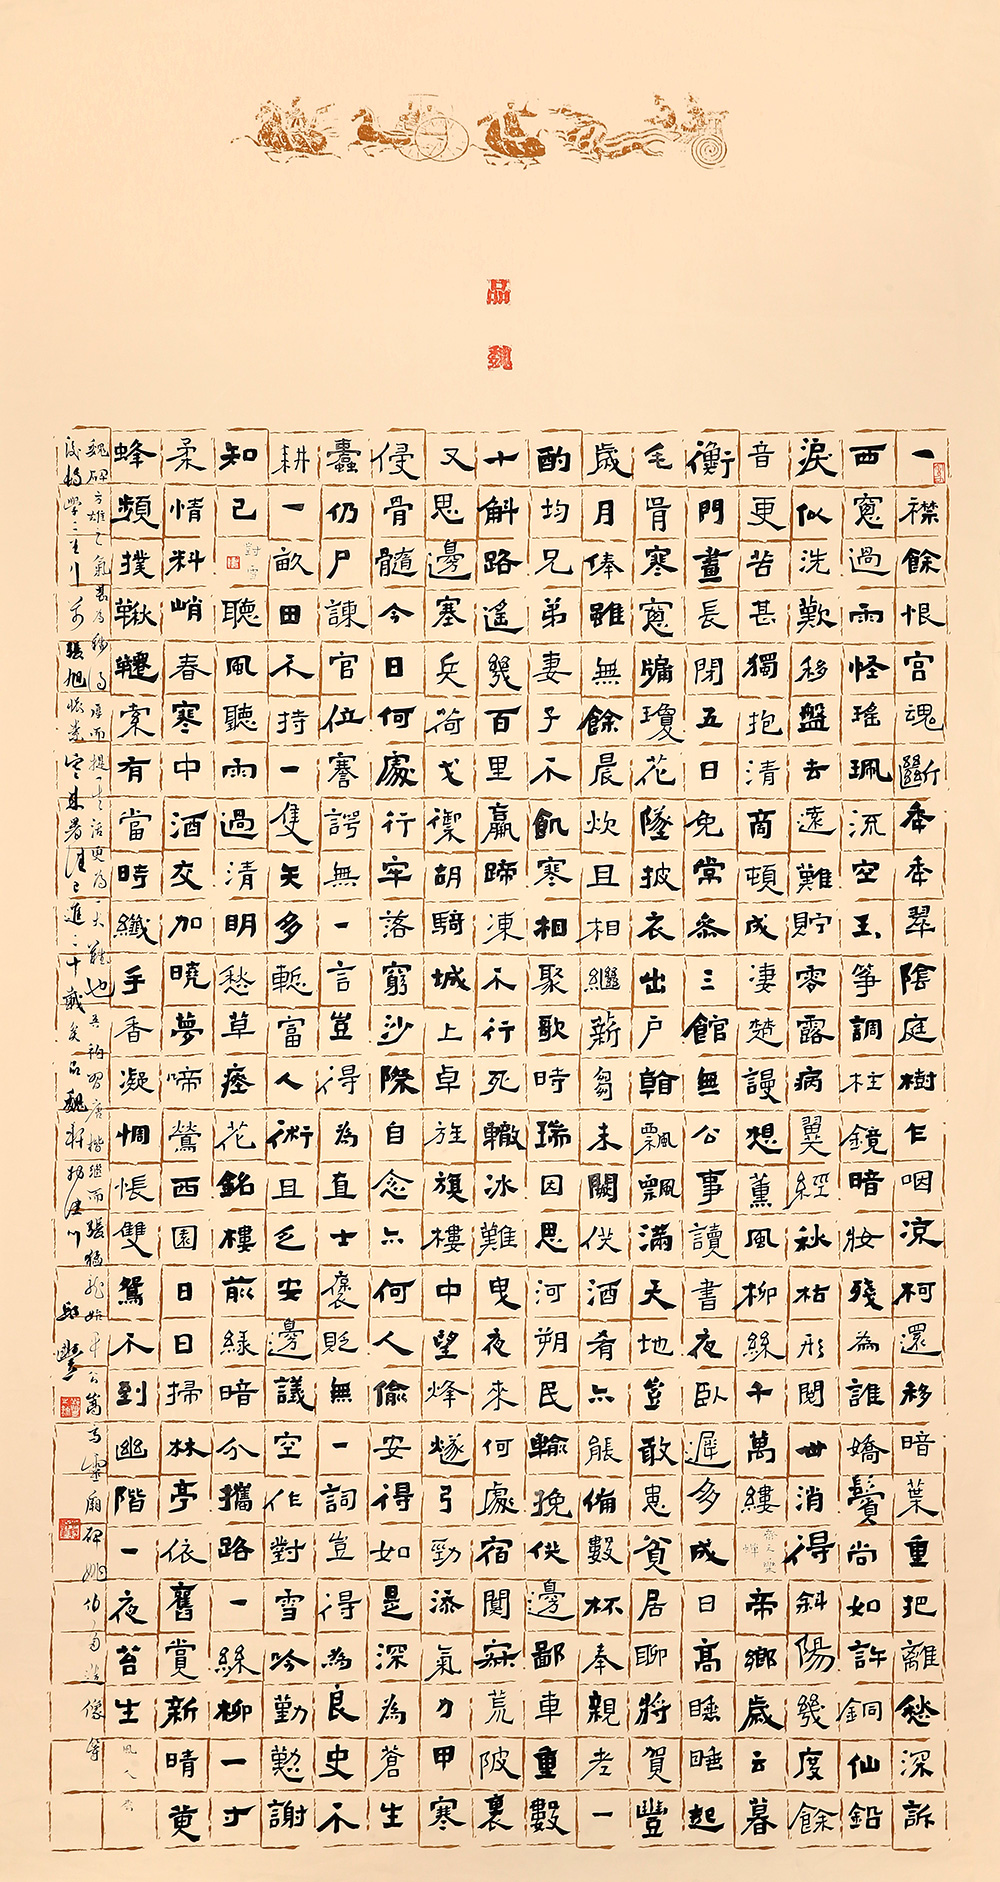 品魏
一襟餘恨宮魂斷秊秊翠陰庭樹乍咽凉柯還移暗葉重把離愁深訴
西窻過雨怪瑤珮流空玉筝調柱鏡暗妝殘為誰嬌鬢尚如許銅仙鉛
淚似洗歎移盤去遠難貯零露病翼經秋枯形閱世消得斜陽幾度餘
音更苦甚獨抱清商頓成凄楚謾想薰風柳絲千萬縷齊天樂蟬帝鄉歲云暮
衡門晝長閉五日免常參三館無公事讀書夜臥遲多成日高睡睡起
毛骨寒窻牖瓊花墜披衣出戶翰飄飄滿天地豈敢患貧居聊將賀豐
歲月俸雖無餘晨炊且相繼薪芻未闕供酒肴亦能備數杯奉親老一
酌均兄弟妻子不飢寒相聚歌時瑞因思河朔民輸挽供邊鄙車重數
十斛路遙幾百里羸蹄凍不行死轍冰難曳夜來何處宿闃寂荒陂裏
又思邊塞兵荷戈禦胡騎城上卓旌旗樓中望烽燧弓勁添氣力甲寒
侵骨髓今日何處行牢落窮沙際自念亦何人偷安得如是深為蒼生
蠹仍尸諫官位謇諤無一言豈得為直士褒貶無一詞豈得為良史不
耕一畝田不持一隻矢多慙富人術且乏安邊議空作對雪吟勤懃謝
知己對雪聽風聽雨過清明愁草瘞花銘樓前綠暗分攜路一絲柳一寸
柔情料峭春寒中酒交加曉夢啼鶯西園日日掃林亭依舊賞新晴黃
蜂頻撲鞦韆索有當時纖手香凝惆悵雙鴛不到幽階一夜苔生風入松
魏碑方雄之氣甚為難也吾初習唐楷繼而張猛龍始平公嵩高靈廟碑姚伯多造像等
張旭懷素二十載矣品魏